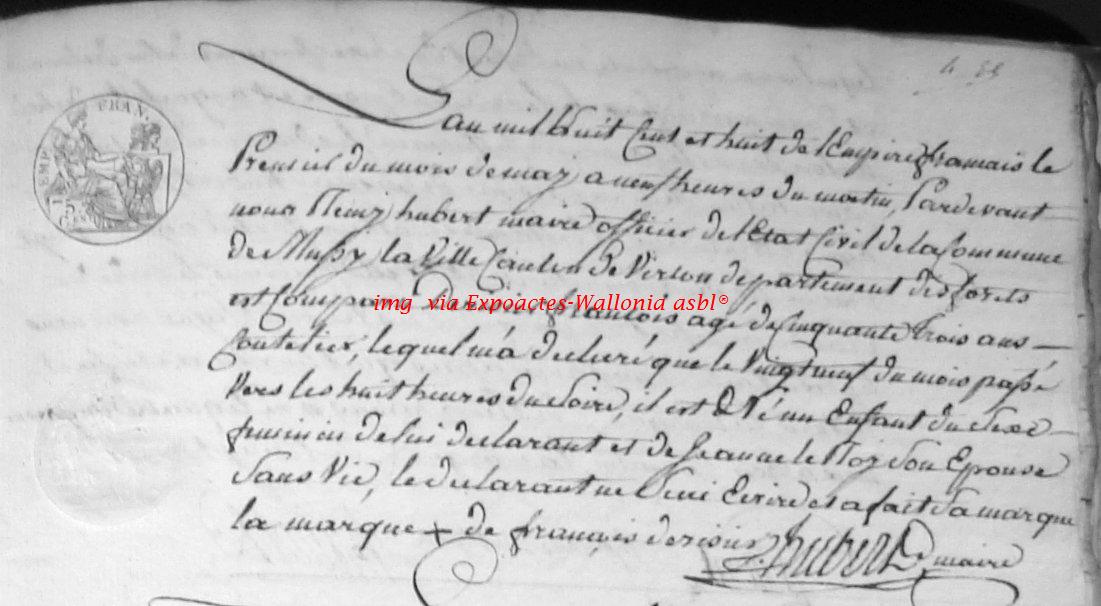 4. 38
TIMP. FRAN.
Lan mil huit Cent et huit de l'Empire framais le
Premier du mois de may a neuf heures du matin, Pardevant
nous Remy hubert maire officier de l'Etat Civil de la Commune
de Mussy la Ville Canton de Virton departement des forets
est Comparu françois agé de Cinquante trois ans —
Coutelier, lequel m'a declaré que le Vingt neuf du mois passé
Vers les huit heures du Soire, il est Né un Enfant du Sexe —
feminin de lui declarant et de Jeanne le Roy Son Epouse
Sans Vie, le declarant ne Seui Ecrire et a fait Sa marque
la marque + de françois
hubert maire
img via Expoactes-Wallonia asbl®